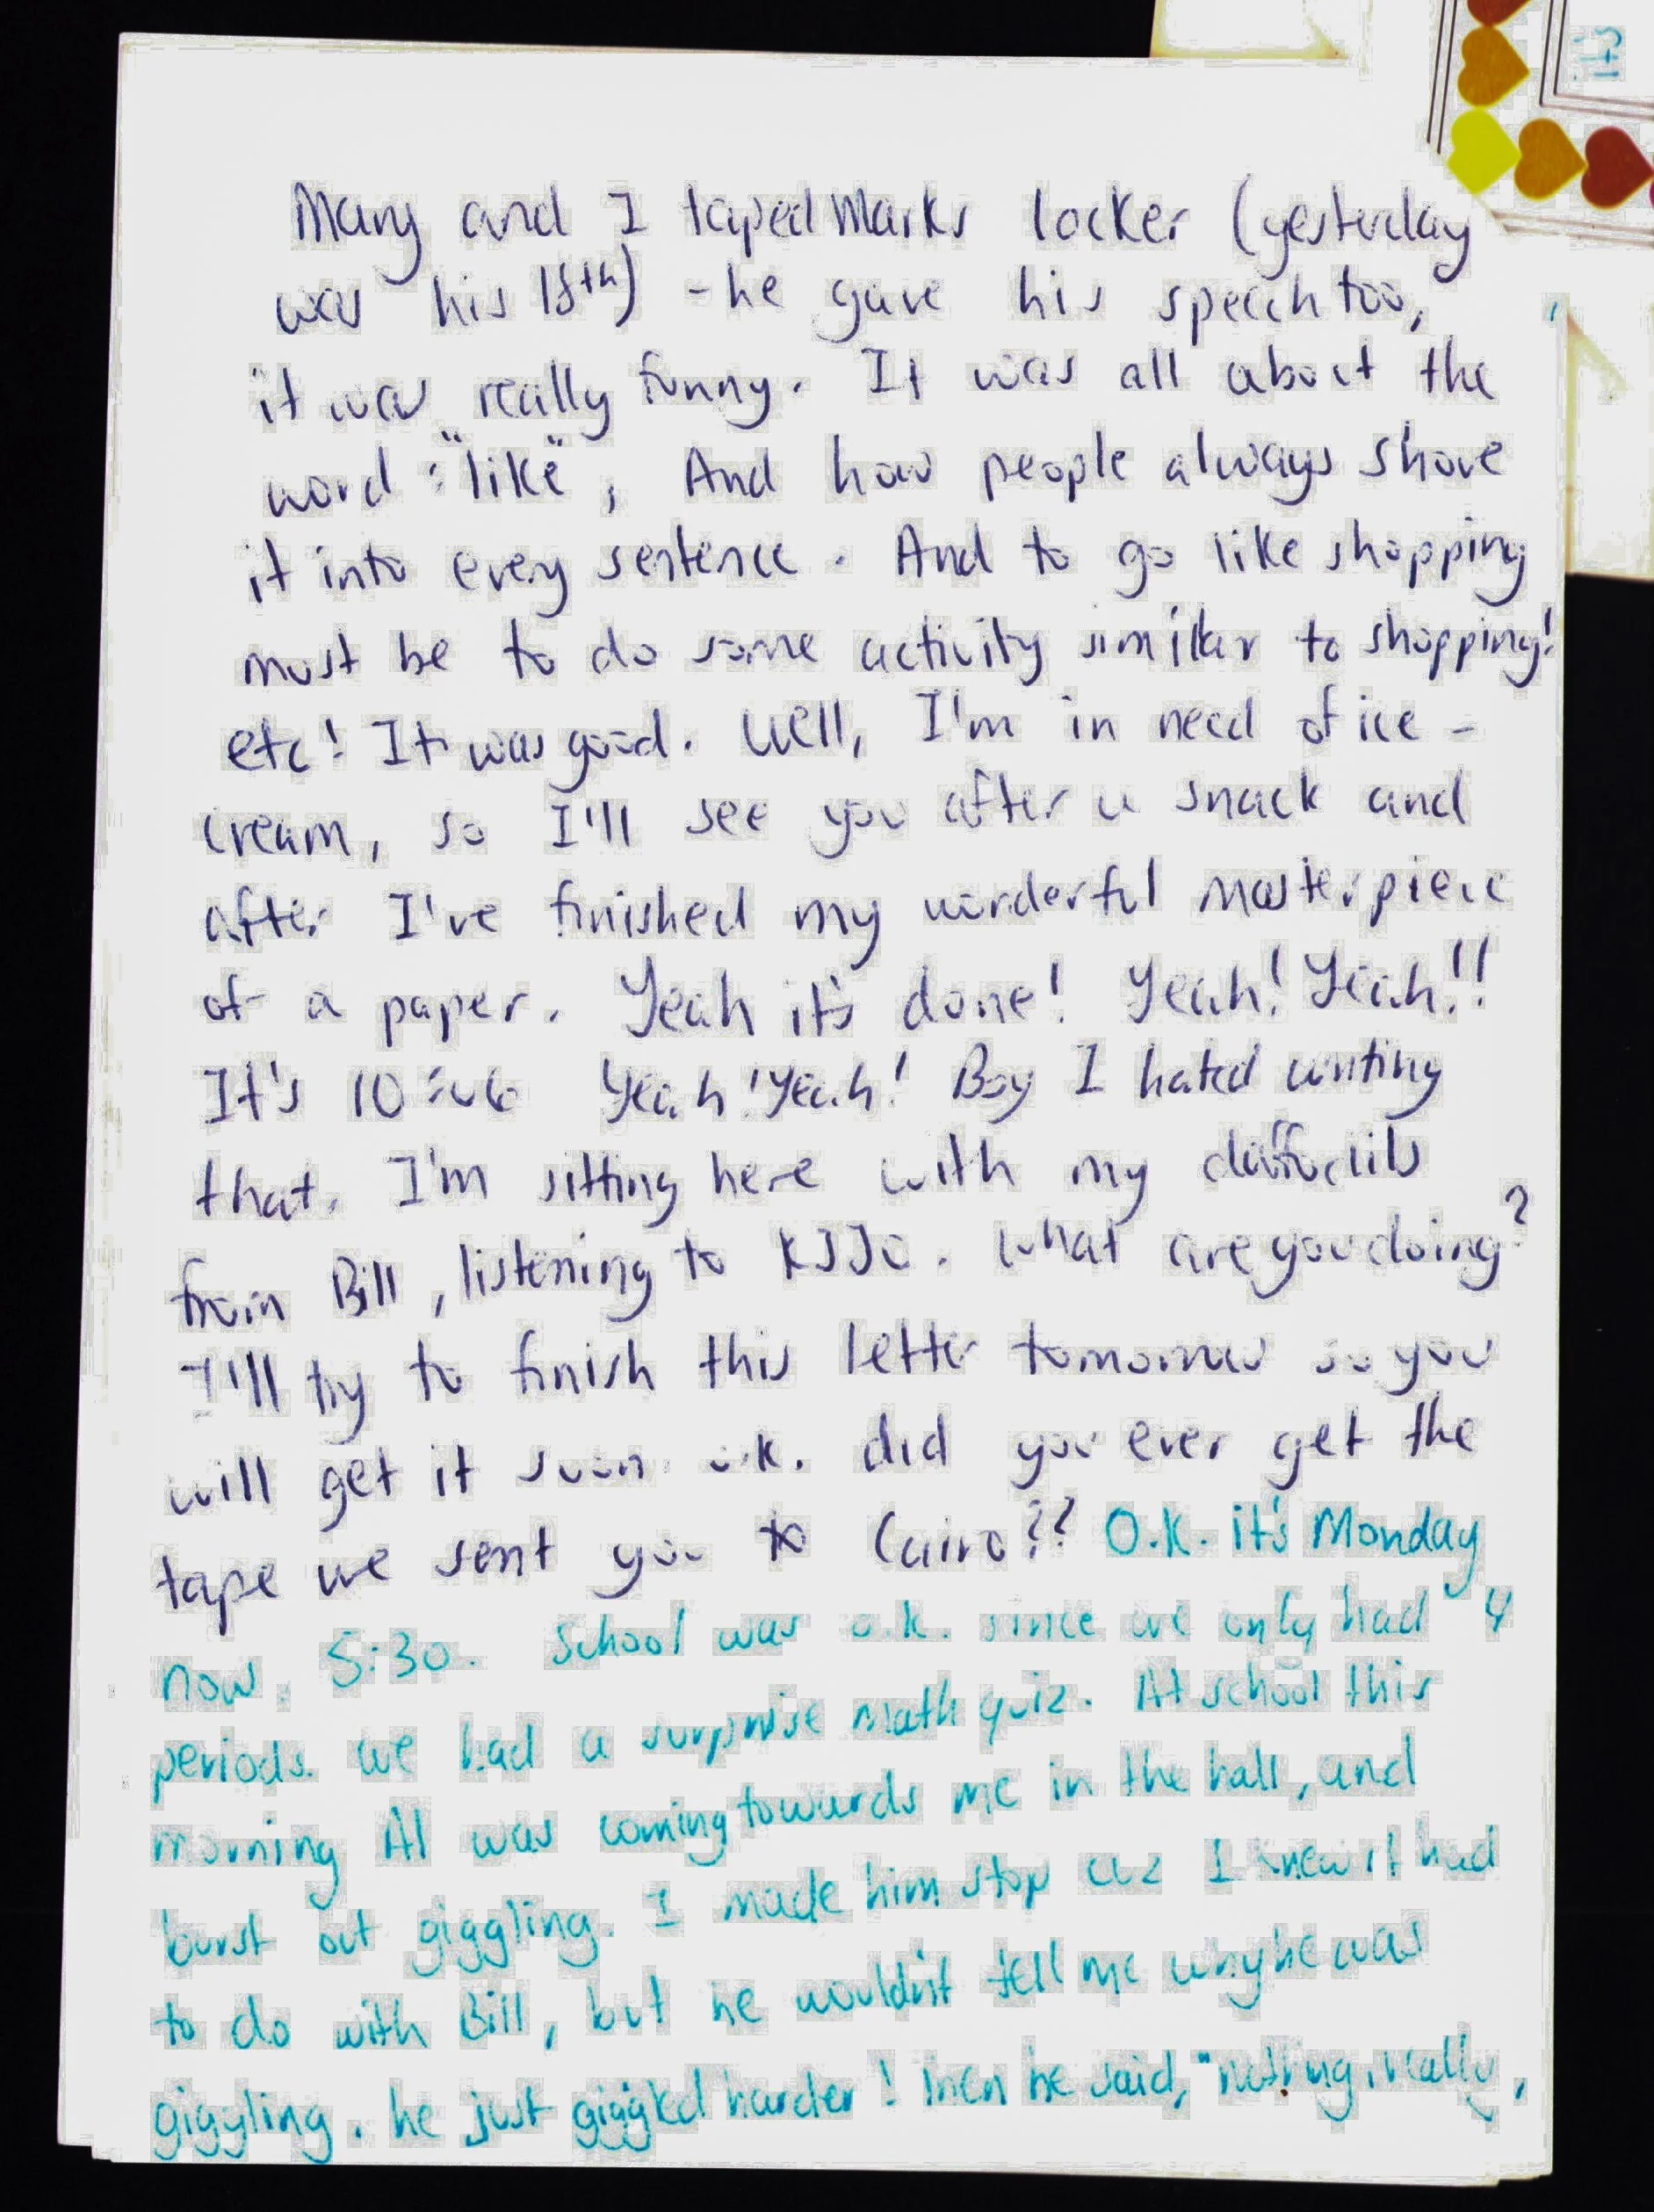 Mary and I taped Marks locker (yesterday
was his 18th) - he gave his speech too,
it was really funny. It was all about the
word : "like", And how people always shove
it into every sentence. And to go like shopping
must be to do some activity similar to shopping!
etc! It was good. Well, I'm in need of ice -
cream, so I'll see you after a snack and
after I've finished my wonderful masterpiece
of a paper. Yeah it's done! Yeah! Yeah!!
It's 10 Yeah! Yeah! Boy I hated writing
that. I'm sitting here with my daffodils
from Bill, listening to KJJO. What are you doing?
I'll try to finish this letter tomorrow so you
will get it soon. o.k. did you ever get the
tape we sent you to Cairo?? O.K. it's Monday
now, 5:30. School was o.k. since we only had 4
periods. we had a surprise math quiz. At school this
morning Al was coming towards me in the hall, and
burst out giggling. I made him stop cuz I knew it had
to do with Bill, but he wouldn't tell me why he was
giggling. he just giggled harder! Then he said, "nothing, really,
it's